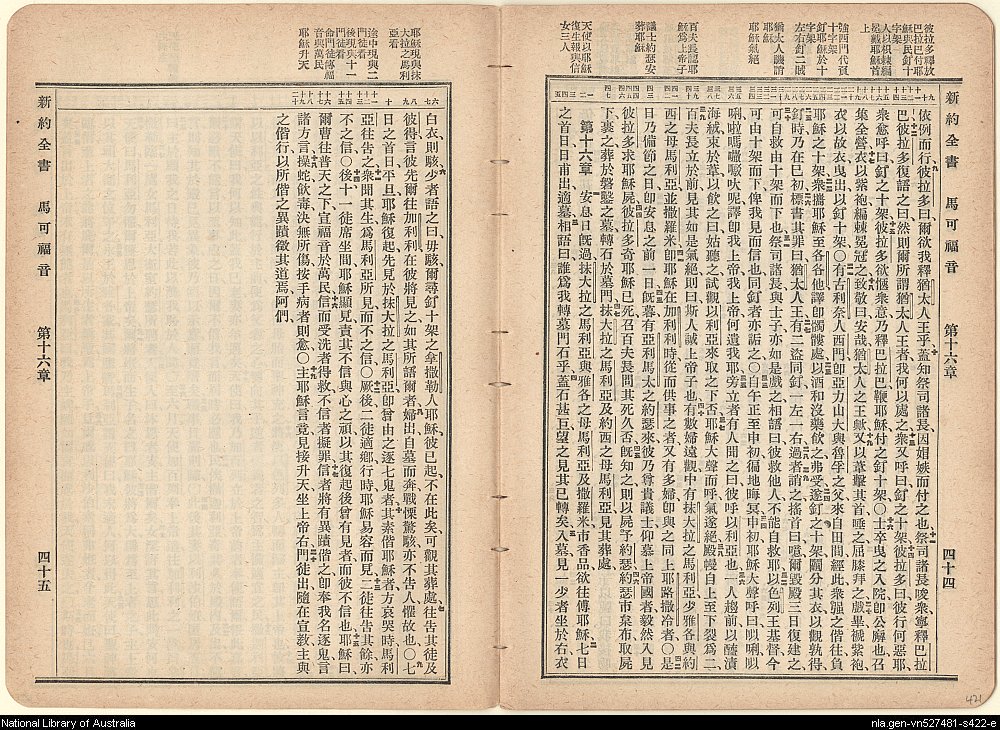 彼拉多釋放
巴拉巴付耶
穌與民釘十
字架
人以棘冕
冕戴耶穌首
強西門代負
十字架
釘耶穌於十
字架
左右釘二賊
猶太人譏誚
耶穌
耶穌氣絕
百夫長認耶
穌為上帝子
議士約瑟安
葬耶穌
天使以耶穌
復生報與信
女三人
新約全書 馬可福音 第十六章 四十四
依例而行彼拉多曰爾欲我釋猶太人王乎蓋知祭司諸長因媢嫉而付之也祭司諸長唆衆寧釋巴拉
巴彼拉多復語之曰然則爾所謂猶太人王者我何以處之衆又呼曰釘之十架彼拉多曰彼行何惡耶
衆愈呼曰釘之十架彼拉多欲愜衆意乃釋巴拉巴鞭耶穌付之釘十架〇士卒曳之入院卽公廨也召
集全營衣以紫袍編棘冕冠之致敬曰安哉猶太人之王歟又以葦擊其首唾之屈膝拜之戲畢褫紫袍
衣以故衣曳出以釘十架〇有古利奈人西門卽亞力山大與魯孚之父來自田間經此衆強之偕往負
耶穌之十架衆攜耶穌至各各他譯卽髑髏處以酒和沒藥飲之弗受遂釘之十架鬮分其衣以觀孰得
釘時乃在巳初標書其罪曰猶太人王有二盜同釘一左一右過者誚之搖首曰噫爾毀殿三日復建之
可自救由十架而下也祭司諸長與士子亦如是戲之相語曰彼救他人不能自救耶以色列王基督今
可由十架而下俾我見而信也同釘者亦詬之〇自午正至申初徧地晦冥申初耶穌大聲呼曰以唎以
唎啦嗎𠵽吠呢譯卽我上帝我上帝何遺我耶旁立者有人聞之曰彼呼以利亞也一人趨前以醯漬
海絨束於葦以飲之曰姑聽之試觀以利亞來取之下否耶穌大聲而呼氣遂絕殿幔自上至下裂為二
百夫長立於前見其如是氣絕則曰斯人誠上帝子也有數婦遠觀中有抹大拉之馬利亞少雅各與約
西之母馬利亞並撒羅米卽耶穌在加利利時從而供事之者又有多婦卽與之同上耶路撒冷者〇是
日乃備節之日卽安息之前一日旣暮有亞利馬太之約瑟來彼乃尊貴議士仰慕上帝國者毅然入見
彼拉多求耶穌屍彼拉多奇耶穌已死召百夫長問其死久否旣知之則以屍予約瑟約瑟市枲布取屍
下裹之葬於磐鑿之墓轉石於墓門抹大拉之馬利亞及約西之母馬利亞見其葬處
第十六章 安息日旣過抹大拉之馬利亞與雅各之母馬利亞及撒羅米市香品欲往傅耶穌七日
之首日日甫出適墓相語曰誰為我轉墓門石乎蓋石甚巨望之見其已轉矣入墓見一少者坐於右衣
耶穌現與抹
大拉之馬利
亞看
途中現與二
門徒看
後現與十一
門徒看
命門徒傳福
音與萬民
耶穌升天
白衣則駭少者語之曰毋駭爾尋釘十架之拿撒勒人耶穌彼已起不在此矣可觀其葬處往告其徒及
彼得言彼先爾往加利利在彼將見之如其所語爾者婦出自墓而奔戰慄驚駭亦不告人懼故也〇七
日之首日平旦耶穌復起先見於抹大拉之馬利亞卽曾由之逐七鬼者其素偕耶穌者方哀哭時馬利
亞往告之衆聞其生為馬利亞所見而不之信〇厥後二徒適鄉行時耶穌易容而見二徒往告其餘亦
不之信〇後十一徒席坐間耶穌顯見責其不信與心之頑以其復起後曾有見者而彼不信也耶穌曰
爾曹往普天之下宣福音於萬民信而受洗者得救不信者擬罪信者將有異蹟偕之卽奉我名逐鬼言
諸方言操蛇飲毒決無所傷按手病者則愈〇主耶穌言竟見接升天坐上帝右門徒出隨在宣敎主與
之偕行以所偕之異蹟徵其道焉阿們
新約全書 馬可福音 第十六章 四十五
421
National Library of Australia
nla.gen-vn527481-s422-e